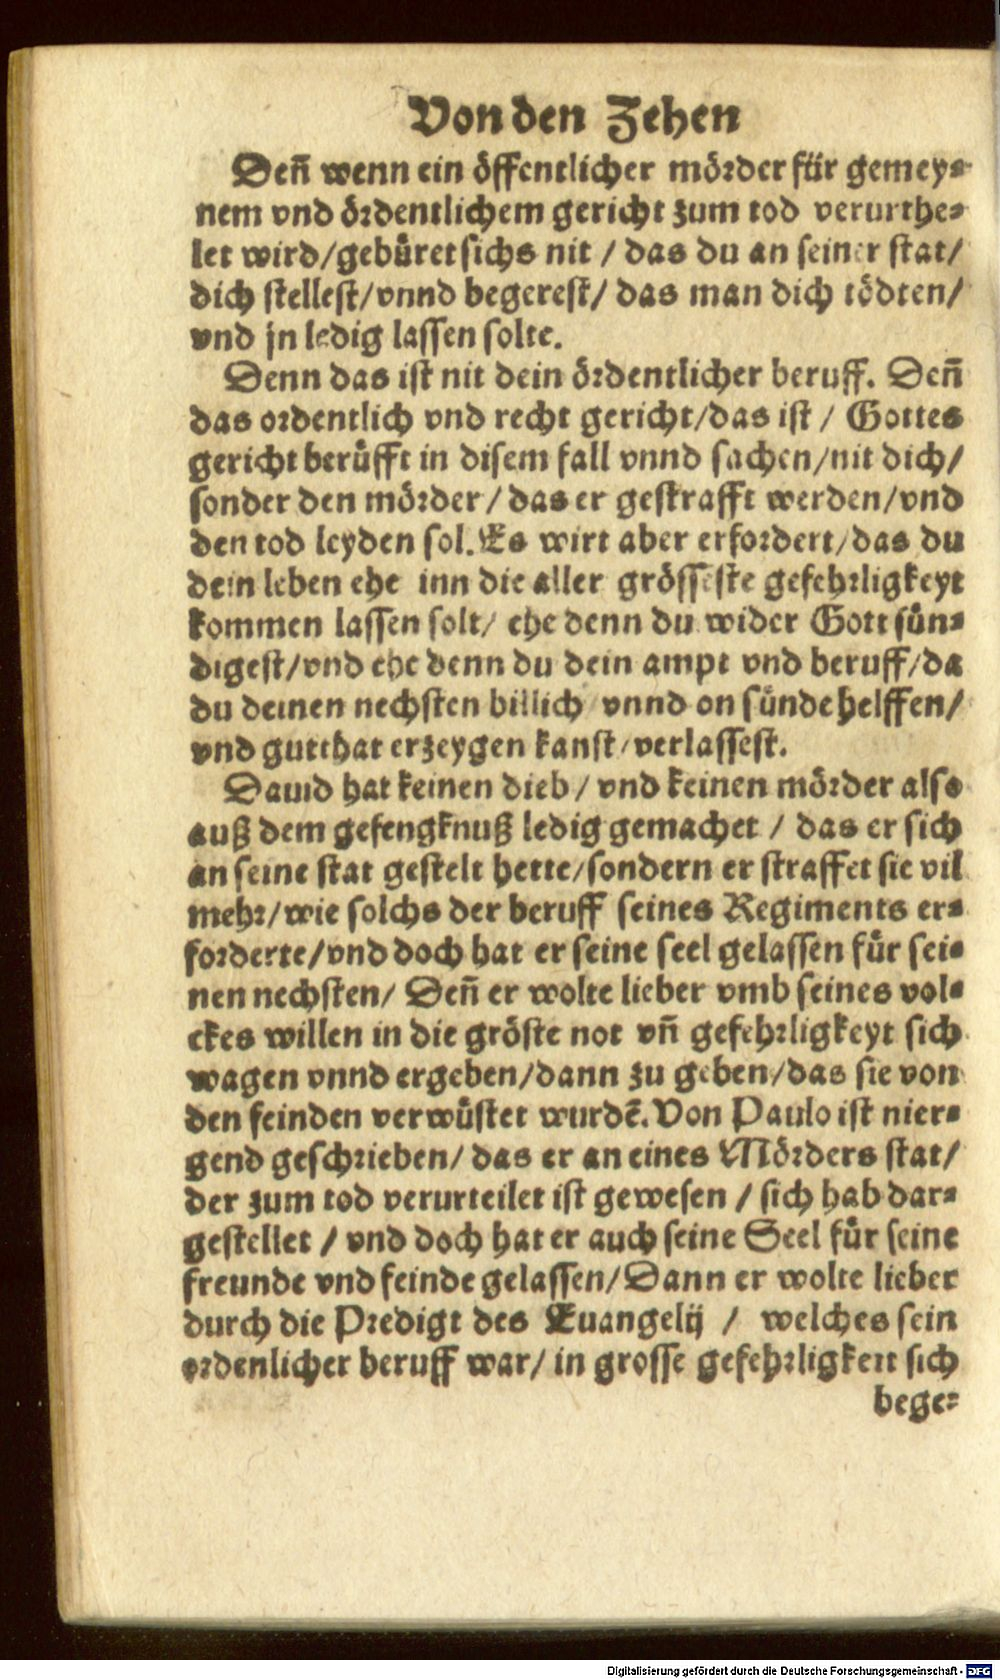 Von den Zehen
Deñ wenn ein öffentlicher mörder für gemey⸗
nem vnd ördentlichem gericht zum tod verurthe⸗
let wird/gebüret sichs nit / das du an seiner stat/
dich stellest/vnnd begerest/ das man dich tödten/
vnd jn ledig lassen solte.
Denn das ist nit dein ördentlicher beruff. Deñ
das ordentlich vnd recht gericht/das ist / Gottes
gericht berüfft in disem fall vnnd sachen/nit dich/
sonder den mörder / das er gestrafft werden/vnd
den tod leyden sol. Es wirt aber erfordert/das du
dein leben ehe inn die aller grösseste gefehrligkeyt
kommen lassen solt/ ehe denn du wider Gott sün⸗
digest/vnd ehe denn du dein ampt vnd beruff/da
du deinen nechsten billich vnnd on sünde helffen/
vnd gutthat erzeygen kanst/verlassest.
Dauid hat keinen dieb / vnd keinen mörder also
auß dem gefengknuß ledig gemachet / das er sich
an seine stat gestelt hette/sondern er straffet sie vil
mehr/wie solchs der beruff seines Regiments er⸗
forderte/vnd doch hat er seine seel gelassen für sei⸗
nen nechsten/ Deñ er wolte lieber vmb seines vol⸗
ckes willen in die gröste not vñ gefehrligkeyt sich
wagen vnnd ergeben/dann zu geben/das sie von
den feinden verwüstet wurdẽ. Von Paulo ist nier⸗
gend geschrieben/ das er an eines Mörders stat/
der zum tod verurteilet ist gewesen / sich hab dar⸗
gestellet / vnd doch hat er auch seine Seel für seine
freunde vnd feinde gelassen/Dann er wolte lieber
durch die Predigt des Euangelij / welches sein
ordenlicher beruff war/ in grosse gefehrligkeit sich
bege⸗
Digitalisierung gefördert durch die Deutsche Forschungsgemeinschaft - DFG